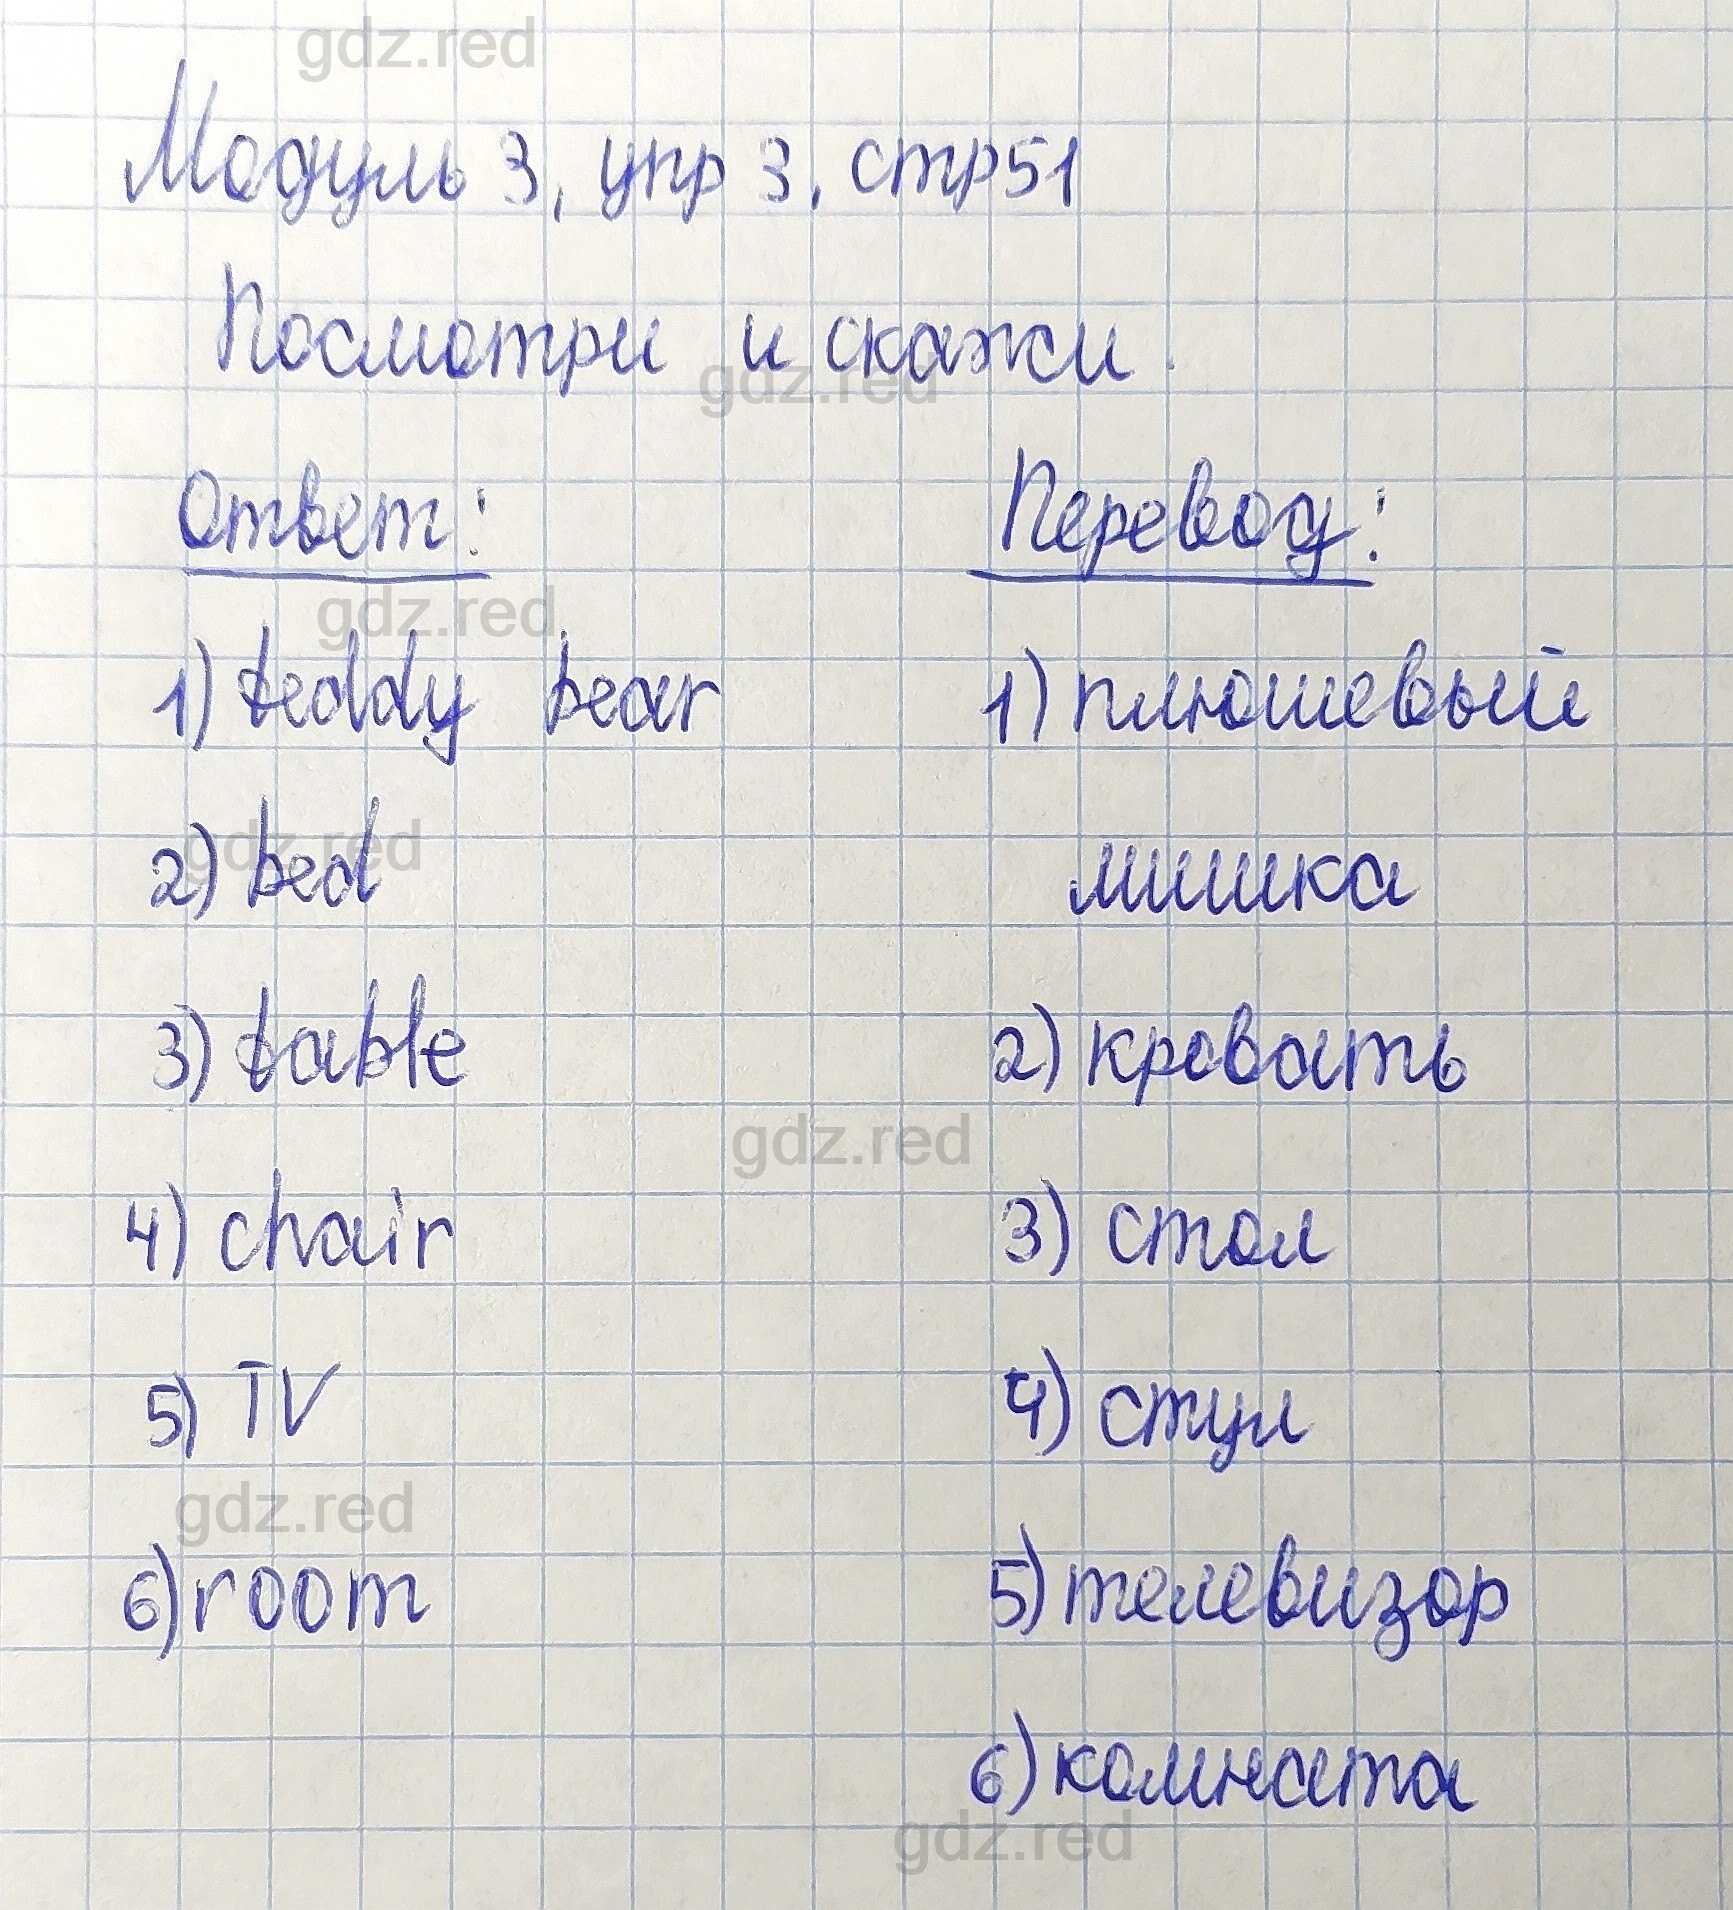 gdz.red
Модуль 3, упр 3, стр51
Посмотри и скажи.
gdz.red
Ответ:
Перевод:
gdz.red
1) teddy bear
1) плюшевый
gdz.red
2) bed
мишка
3) table
2) кровать
gdz.red
4) chair
3) стол
5) TV
4) стул
gdz.red
6) room
5) телевизор
6) комната
gdz.red